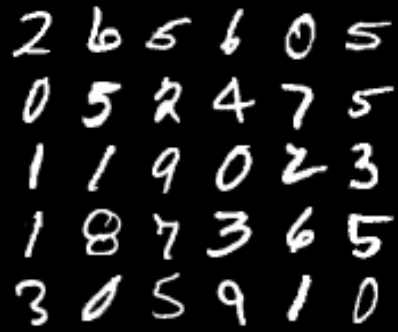 2 6 5 6 0 5
0 5 2 4 7 5
1 1 9 0 2 3
1 8 7 3 6 5
3 0 5 9 1 0